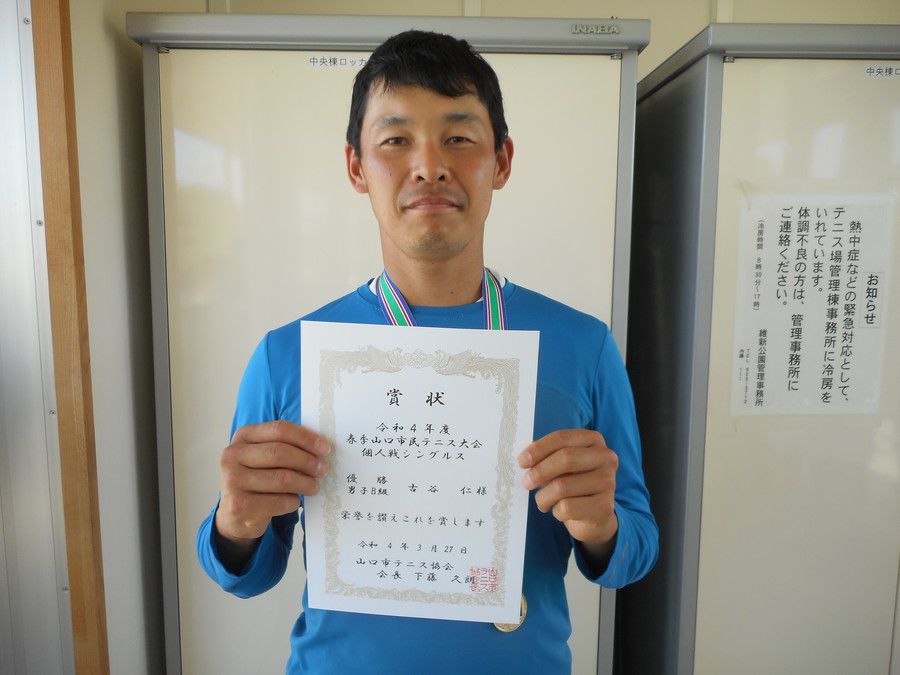 INABA
中央棟ロッカ
中央棟ロ
賞状
令和4年度
春季山口市民テニス大会
個人戦シングルス
優勝
男子B級 古谷 仁 様
栄誉を讃えこれを賞します
令和4年3月27日
山口市テニス協会
会長 下藤 久朗
お知らせ
熱中症などの緊急対応として、
テニス場管理棟事務所に冷房を
いれています。
体調不良の方は、管理事務所に
ご連絡ください。
(冷房時間 8時30分~17時)
維新公園管理事務所